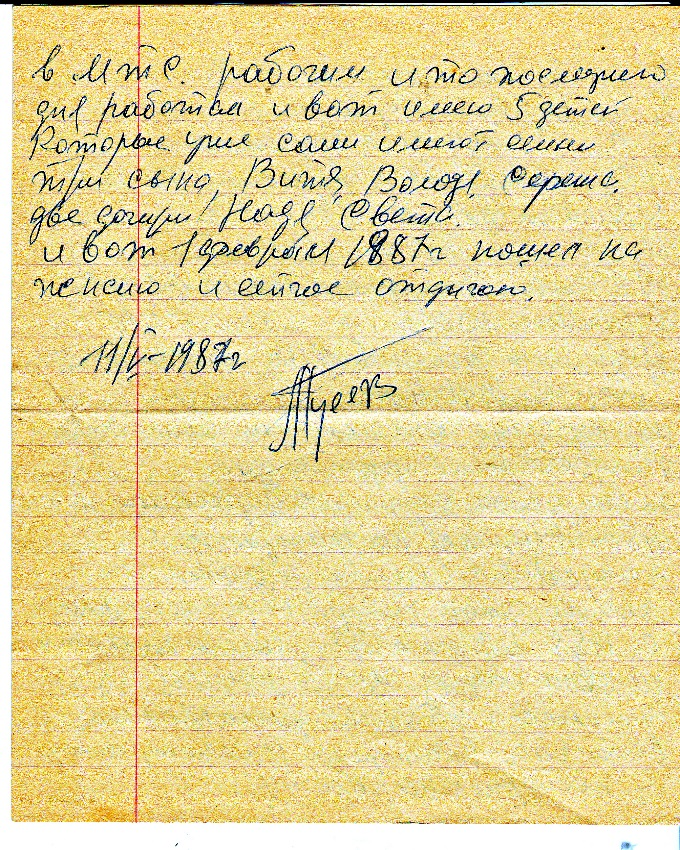 в МТС. рабочим и по последнего
дня работал и вот имею 5 детей
Которые уже сами имеют семьи
три сына, Витя, Володя, Сережа,
две дочери Надя, Света.
и вот 1 февраля 1887г пошел на
пенсию и сейчас отдыхаю.
11/V-1987г